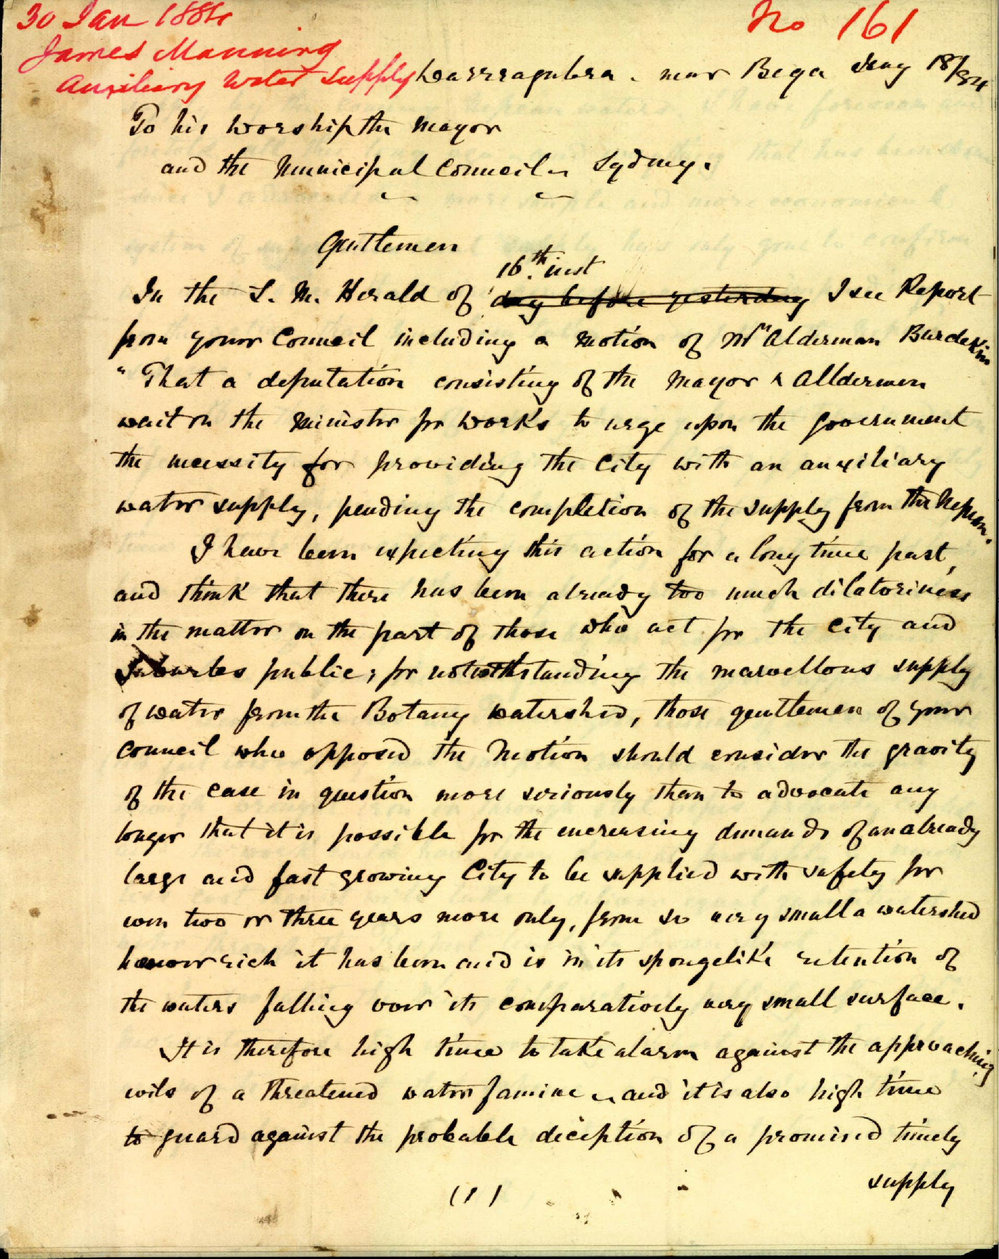 30 Jan 1884
No 161
James Manning
Auxiliary Water Supply
Warragubra. near Bega Jany 18/84
To his Worship the Mayor
and the Municipal Council - Sydney.
Gentlemen
16th. inst
In the S. M. Herald of day before yesterday I see Report
from your Council including a motion of Mr Alderman Burdekin
"That a deputation consisting of the Mayor & Alldermen
wait on the Minister for Works to urge upon the Government
the necessity for providing the City with an auxiliary
water supply, pending the completion of the supply from the Nepean.
I have been expecting this action for a long time past,
and think that there has been already too much dilatoriness
in the matter on the part of those who act for the City and
Suburbs public, for notwithstanding the marvellous supply
of water from the Botany watershed, those gentlemen of your
Council who opposed the Motion should consider the gravity
of the case in question more seriously than to advocate any
longer that it is possible for the increasing demands of an already
large and fast growing City to be supplied with safety for
even two or three years more only, from so very small a watershed
however rich it has been and is in its spongelike retention of
the waters falling over its comparatively very small surface.
It is therefore high time to take alarm against the approaching
evils of a threatened water famine - and it is also high time
to guard against the probable deception of a promised timely
supply
(1)